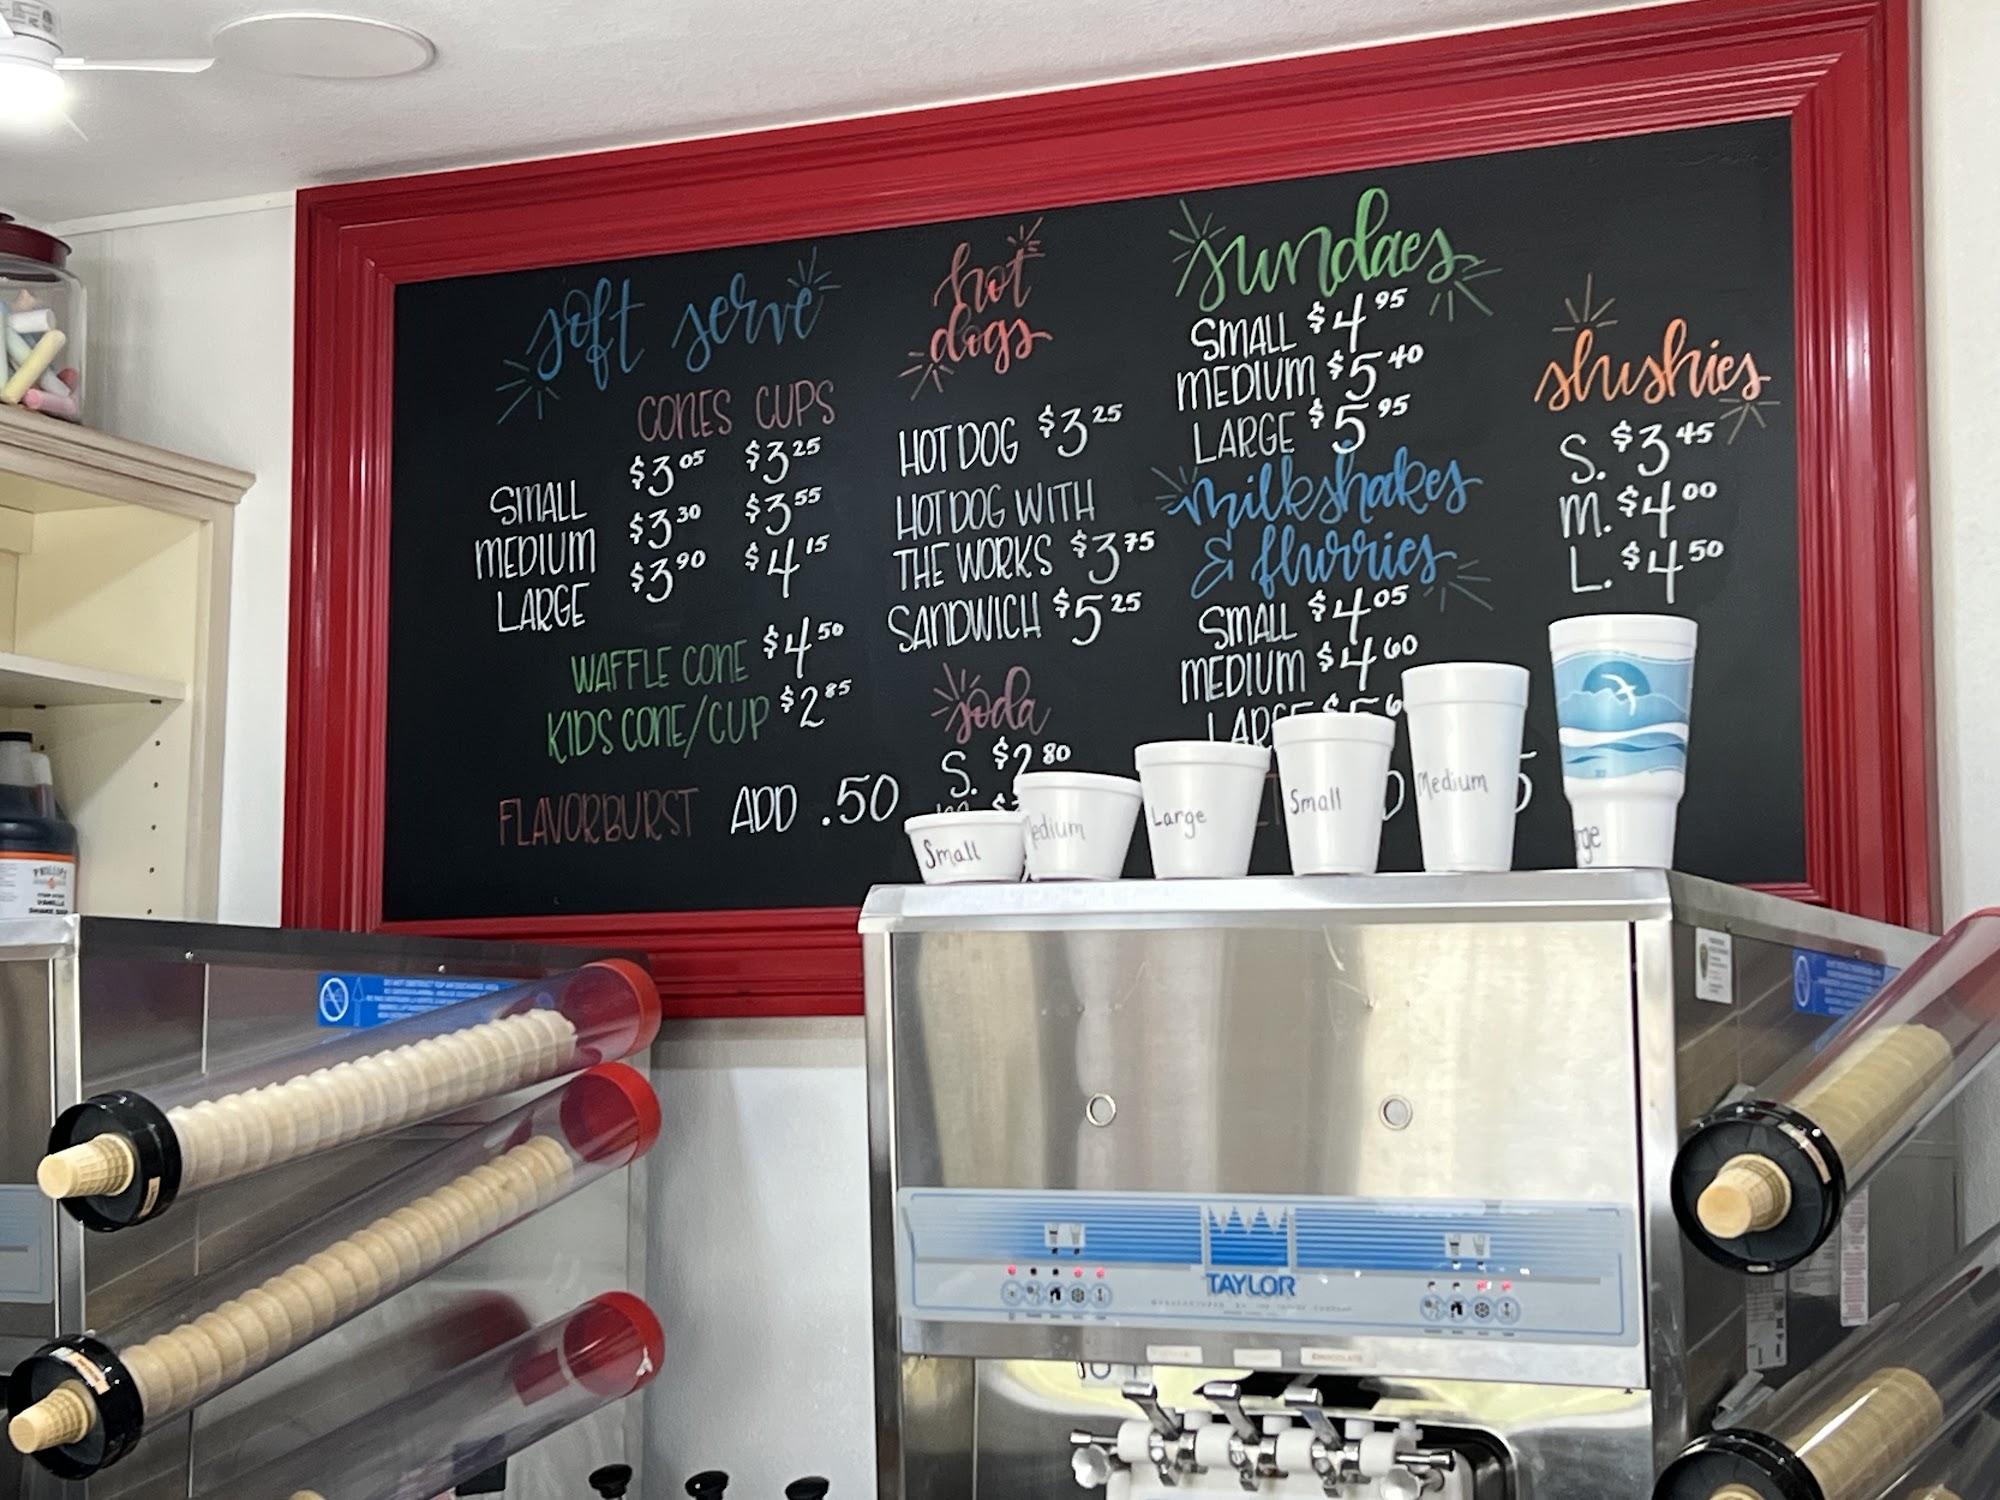 soft serve
CONES CUPS
SMALL $3.05 $3.25
MEDIUM $3.30 $3.55
LARGE $3.90 $4.15
WAFFLE CONE $4.50
KIDS CONE/CUP $2.85
FLAVORBURST ADD .50
hot
dogs
HOT DOG $3.25
HOT DOG WITH
THE WORKS $3.75
SANDWICH $5.25
soda
S. $2.80
sundaes
SMALL $4.95
MEDIUM $5.40
LARGE $5.95
milkshakes
& flurries
SMALL $4.05
MEDIUM $4.60
slushies
S. $3.45
M. $4.00
L. $4.50
Small
Medium
Large
Small
Medium
TAYLOR
CHOCOLATE